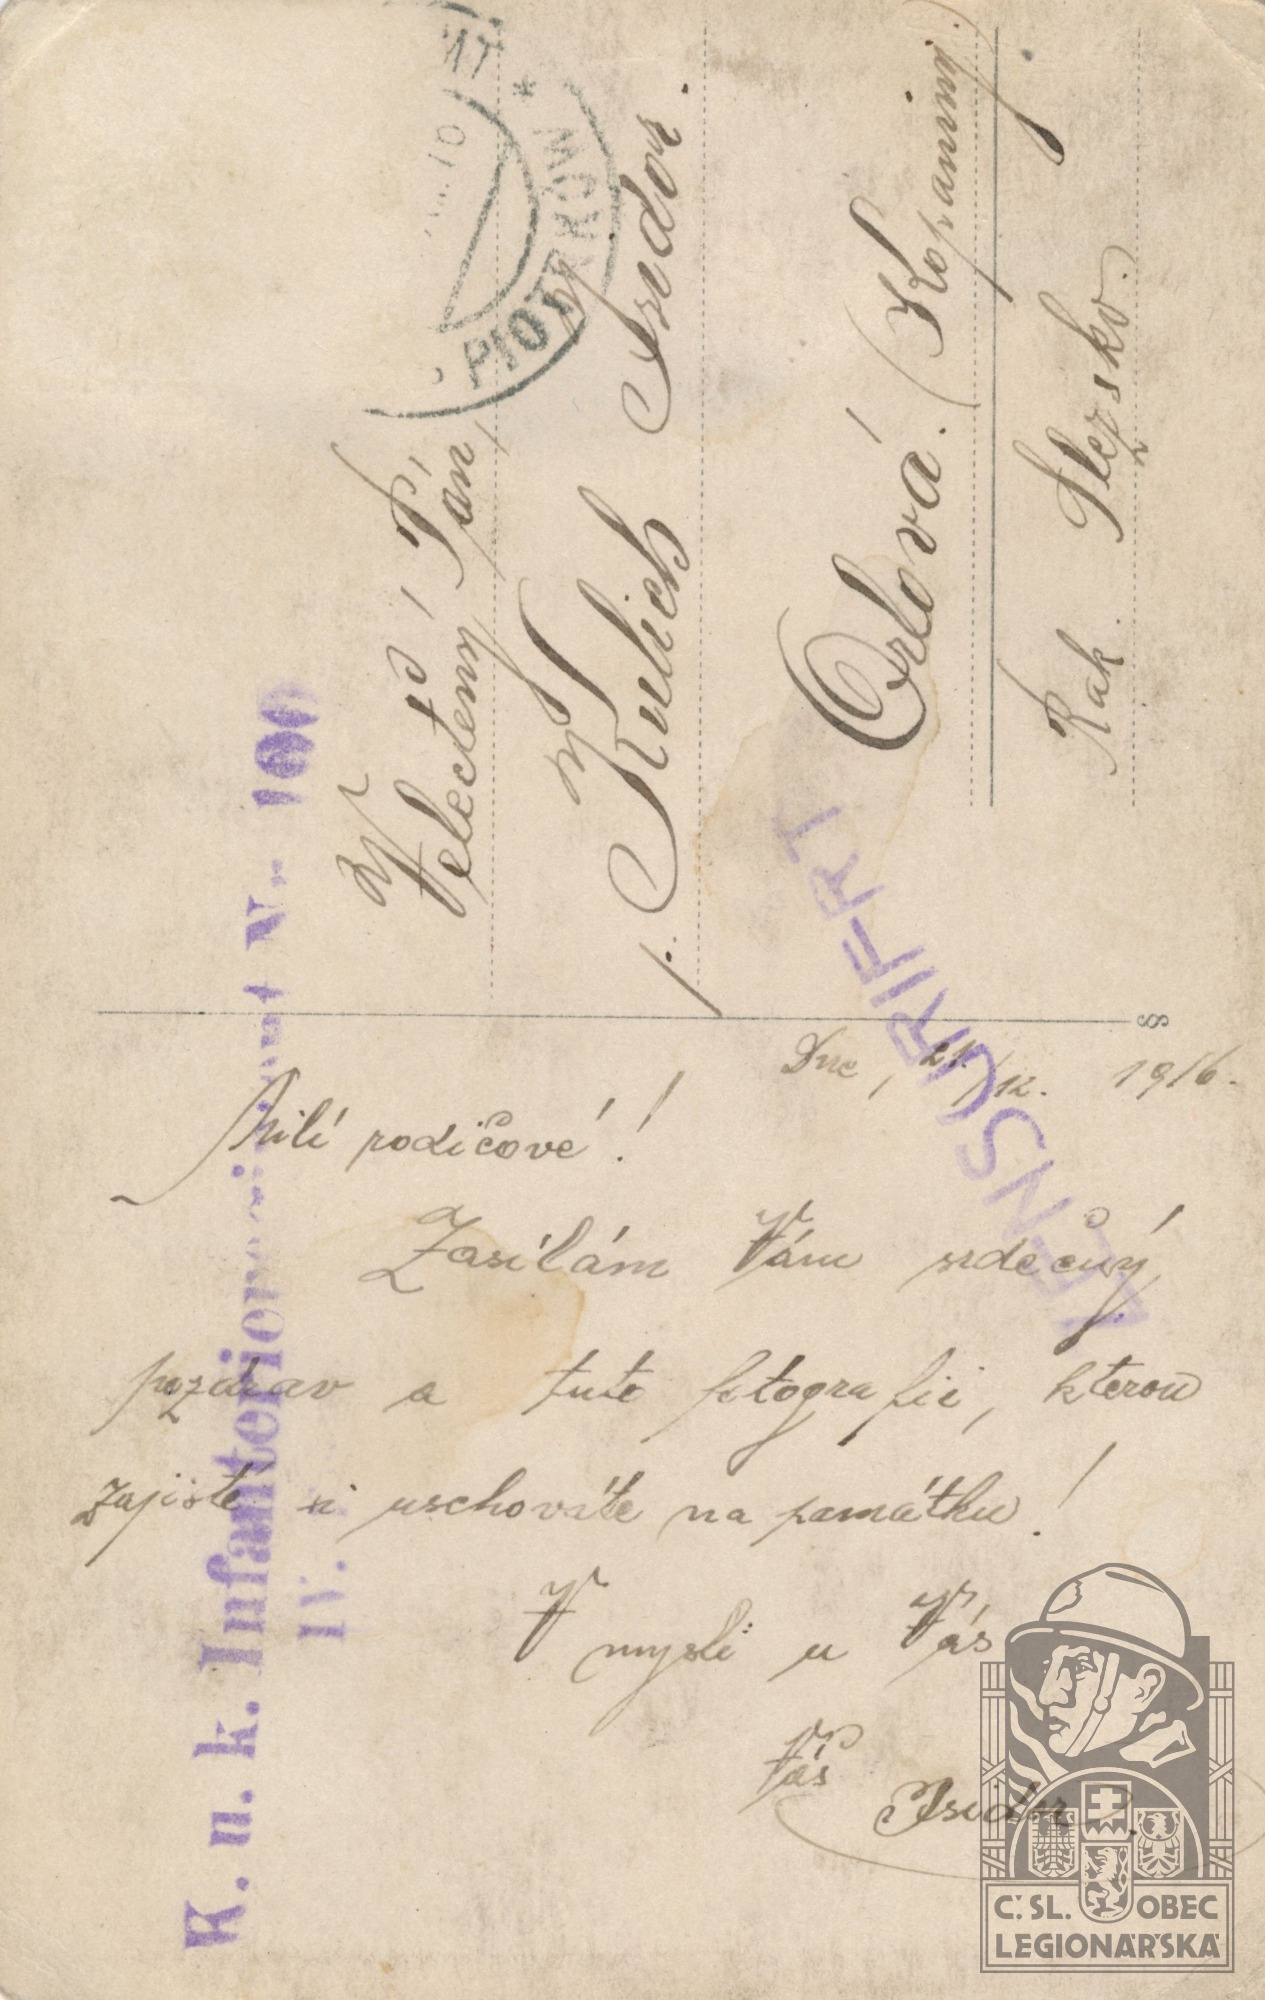 Dne, 21./12. 1916.
Milí rodičové!
Zasílám Vám srdečný
pozdrav a tuto fotografii, kterou
zajisté si uschováte na památku!
V mysli u Vás
Váš
Isidor.
Velectěný Pán
p. Kulich Isidor.
Orlová. (Kopaniny)
Rak. Slezsko.
PIOTRKÓW
K. u. k. Infanterieregiment Nr. 100
IV.
ZENSURIERT
8
Č.SL. OBEC
LEGIONÁŘSKÁ